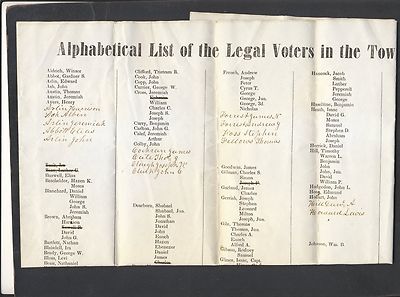 Alphabetical List of the Legal Voters in the Tow
Aldrich, Winsor
Abbot, Gardner S.
Atkin, Edward
Ash, John
Austin, Thomas
Austin, Jeremiah
Ayers, Henry
Atkin Jeremiah
Abbott Elias
Atkin John
Buswell, Elias
Batchelder, Hazen K.
Moses
Blanchard, David
William
George
John S.
Jeremiah
Brown, Abraham
Harrison
David
John G.
Bartlett, Nathan
Blaisdell, Ira
Brady, George W.
Blum, Levi
Bean, Nathaniel
Clifford, Thatrum B.
Cook, John
Copp, John
Currier, George W.
Cross, Jeremiah
William
Charles C.
Joseph S.
Joseph
Curry, Benjamin
Carlton, John G.
Calef, Jeremiah
Arthur
Colby, John
Cochran James
Dearborn, Shubael
Shubael, Jun.
John S.
Jonathan
David
John
Enoch
Hazen
Ebenezer
Daniel
James
French, Andrew
Joseph
Peter
Cyrus T.
George
George, Jun.
George, 3d
Nicholas
Forrest James N
Forrest Andrew J
Foss Stephen
Fellows Thomas
Goodwin, James
Gilman, Charles S.
Garland, James
Charles
Gerrish, Joseph
Stephen
Leonard
Milton
Joseph, Jun.
Gile, Thomas
Thomas, Jun.
Charles A.
Enoch
Alfred A.
Gibson, Rodney
Samuel
Glines, Isaac, Capt.
Hancock, Jacob
Smith
Luther
Pepperell
Jeremiah
George
Hazeltine, Benjamin
Heath, Isaac
David G.
Moses
Samuel
Stephen D.
Abraham
Joseph
Herrick, Daniel
Hill, Timothy
Warren L.
Benjamin
John
John, Jun.
David
William P.
Hodgedon, John L.
Hoag, Robert
Hollett, John
Howard Lewis
Johnson, Wm. B.